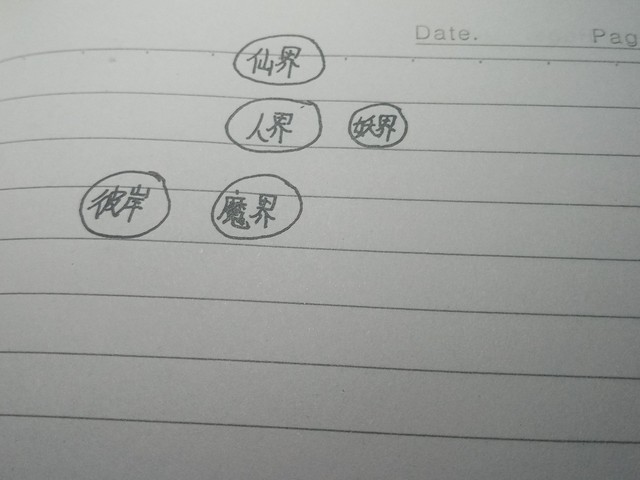 Date. Pag
仙界
人界 妖界
彼岸 魔界